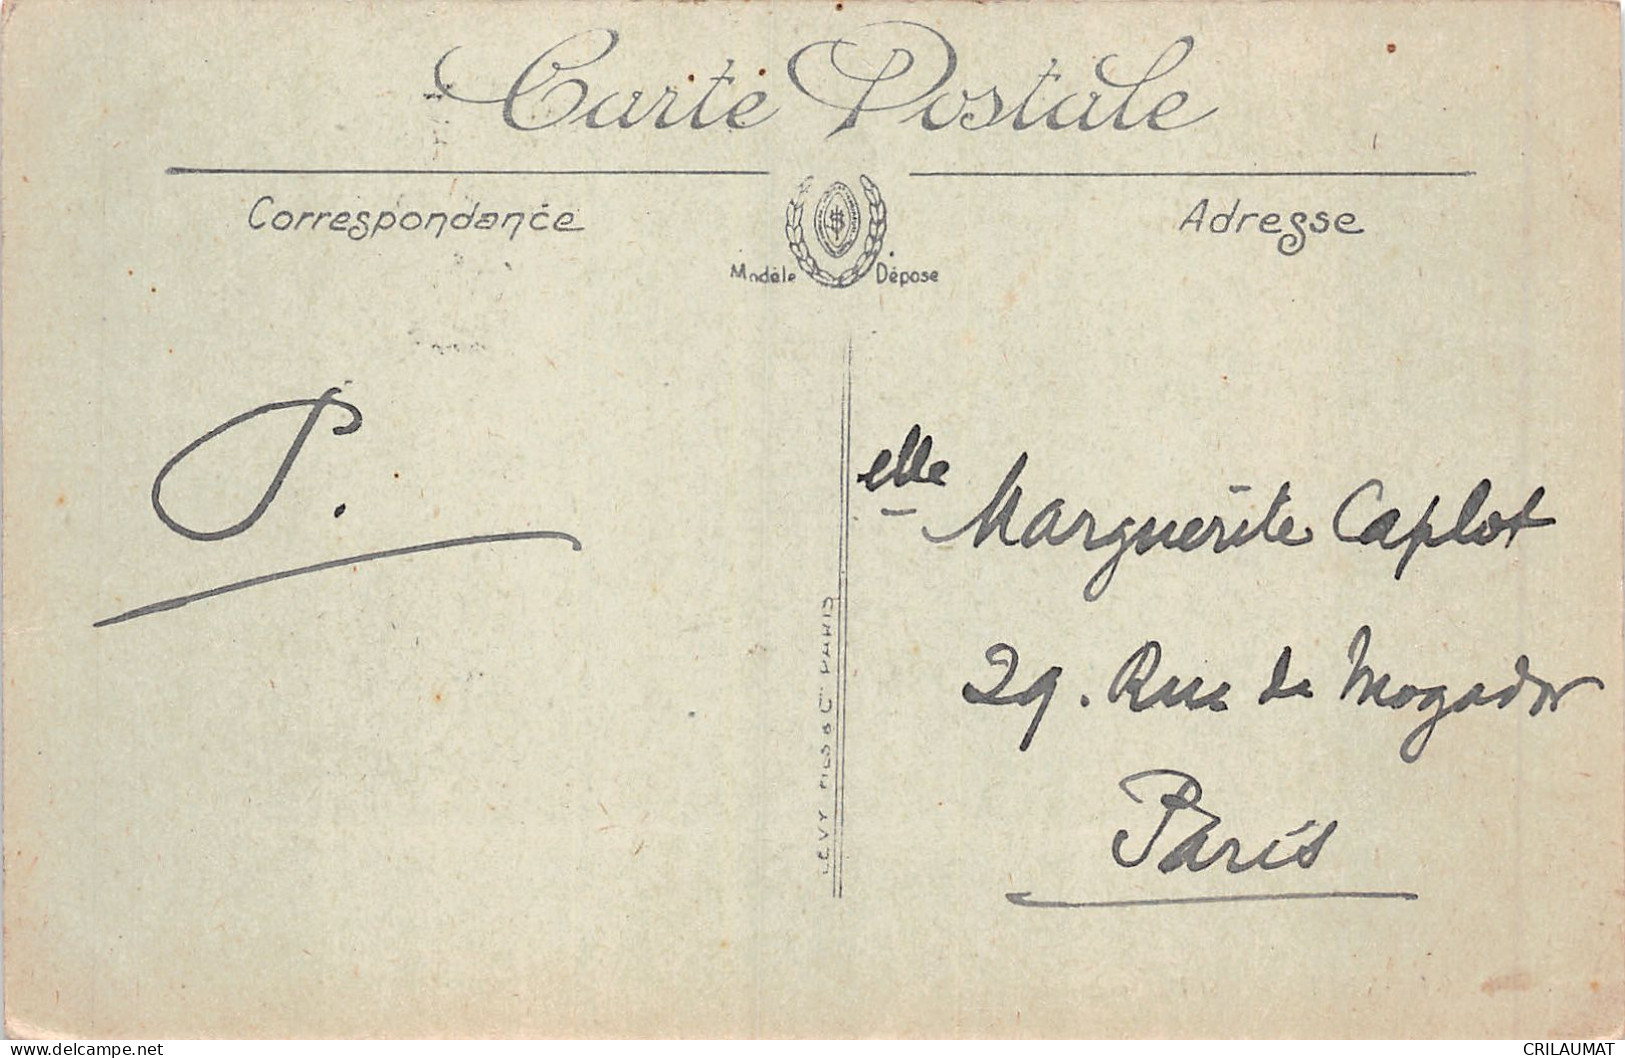 Carte Postale
Correspondance
Adresse
Modèle Déposé
P.
elle Marguerite Caplot
29. Rue de Mogador
Paris
LEVY FILS & Cie PARIS
www.delcampe.net
CRILAUMAT